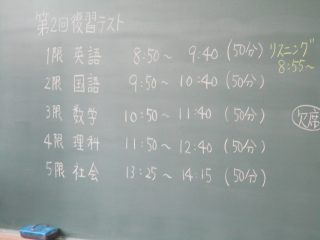 第2回復習テスト
1限 英語 8:50～ 9:40 (50分) リスニング 8:55～
2限 国語 9:50～ 10:40 (50分)
3限 数学 10:50～ 11:40 (50分)
欠席
4限 理科 11:50～ 12:40 (50分)
5限 社会 13:25～ 14:15 (50分)